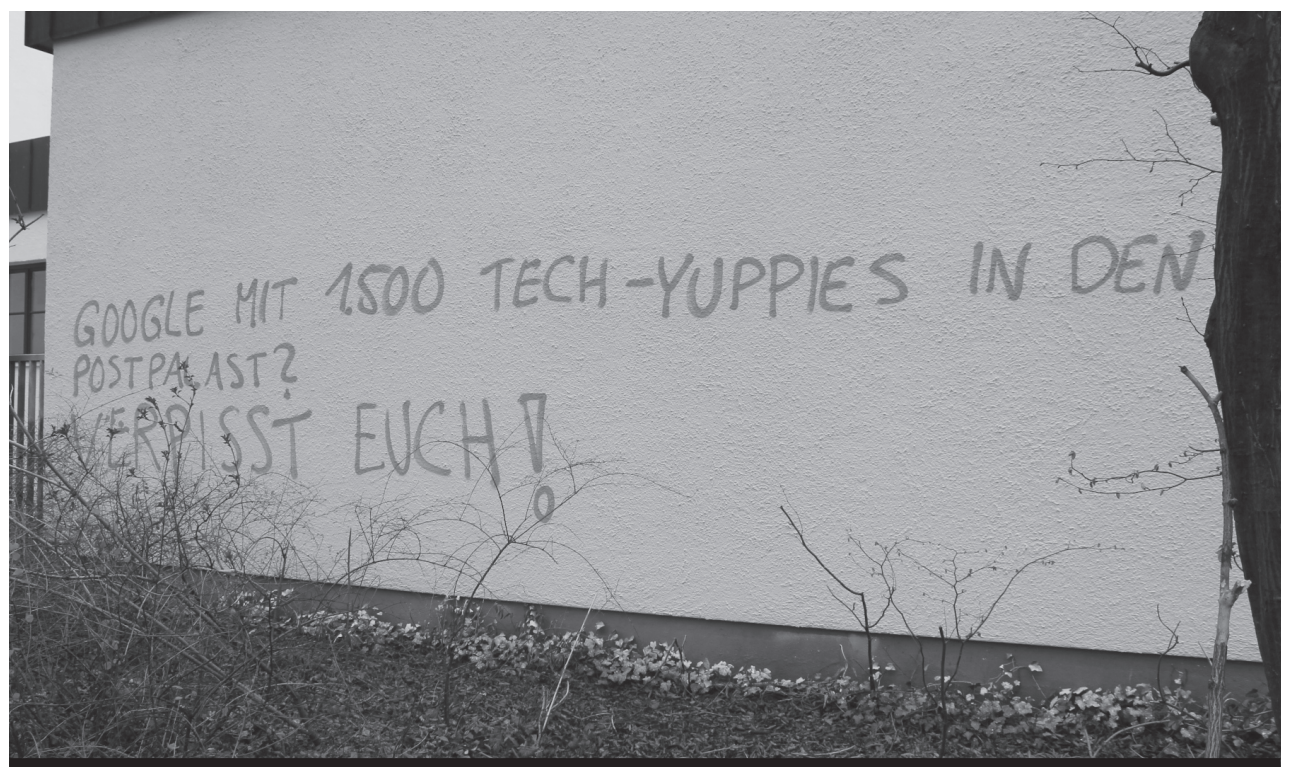 GOOGLE MIT 1.500 TECH-YUPPIES IN DEN
POSTPALAST?
VERPISST EUCH!